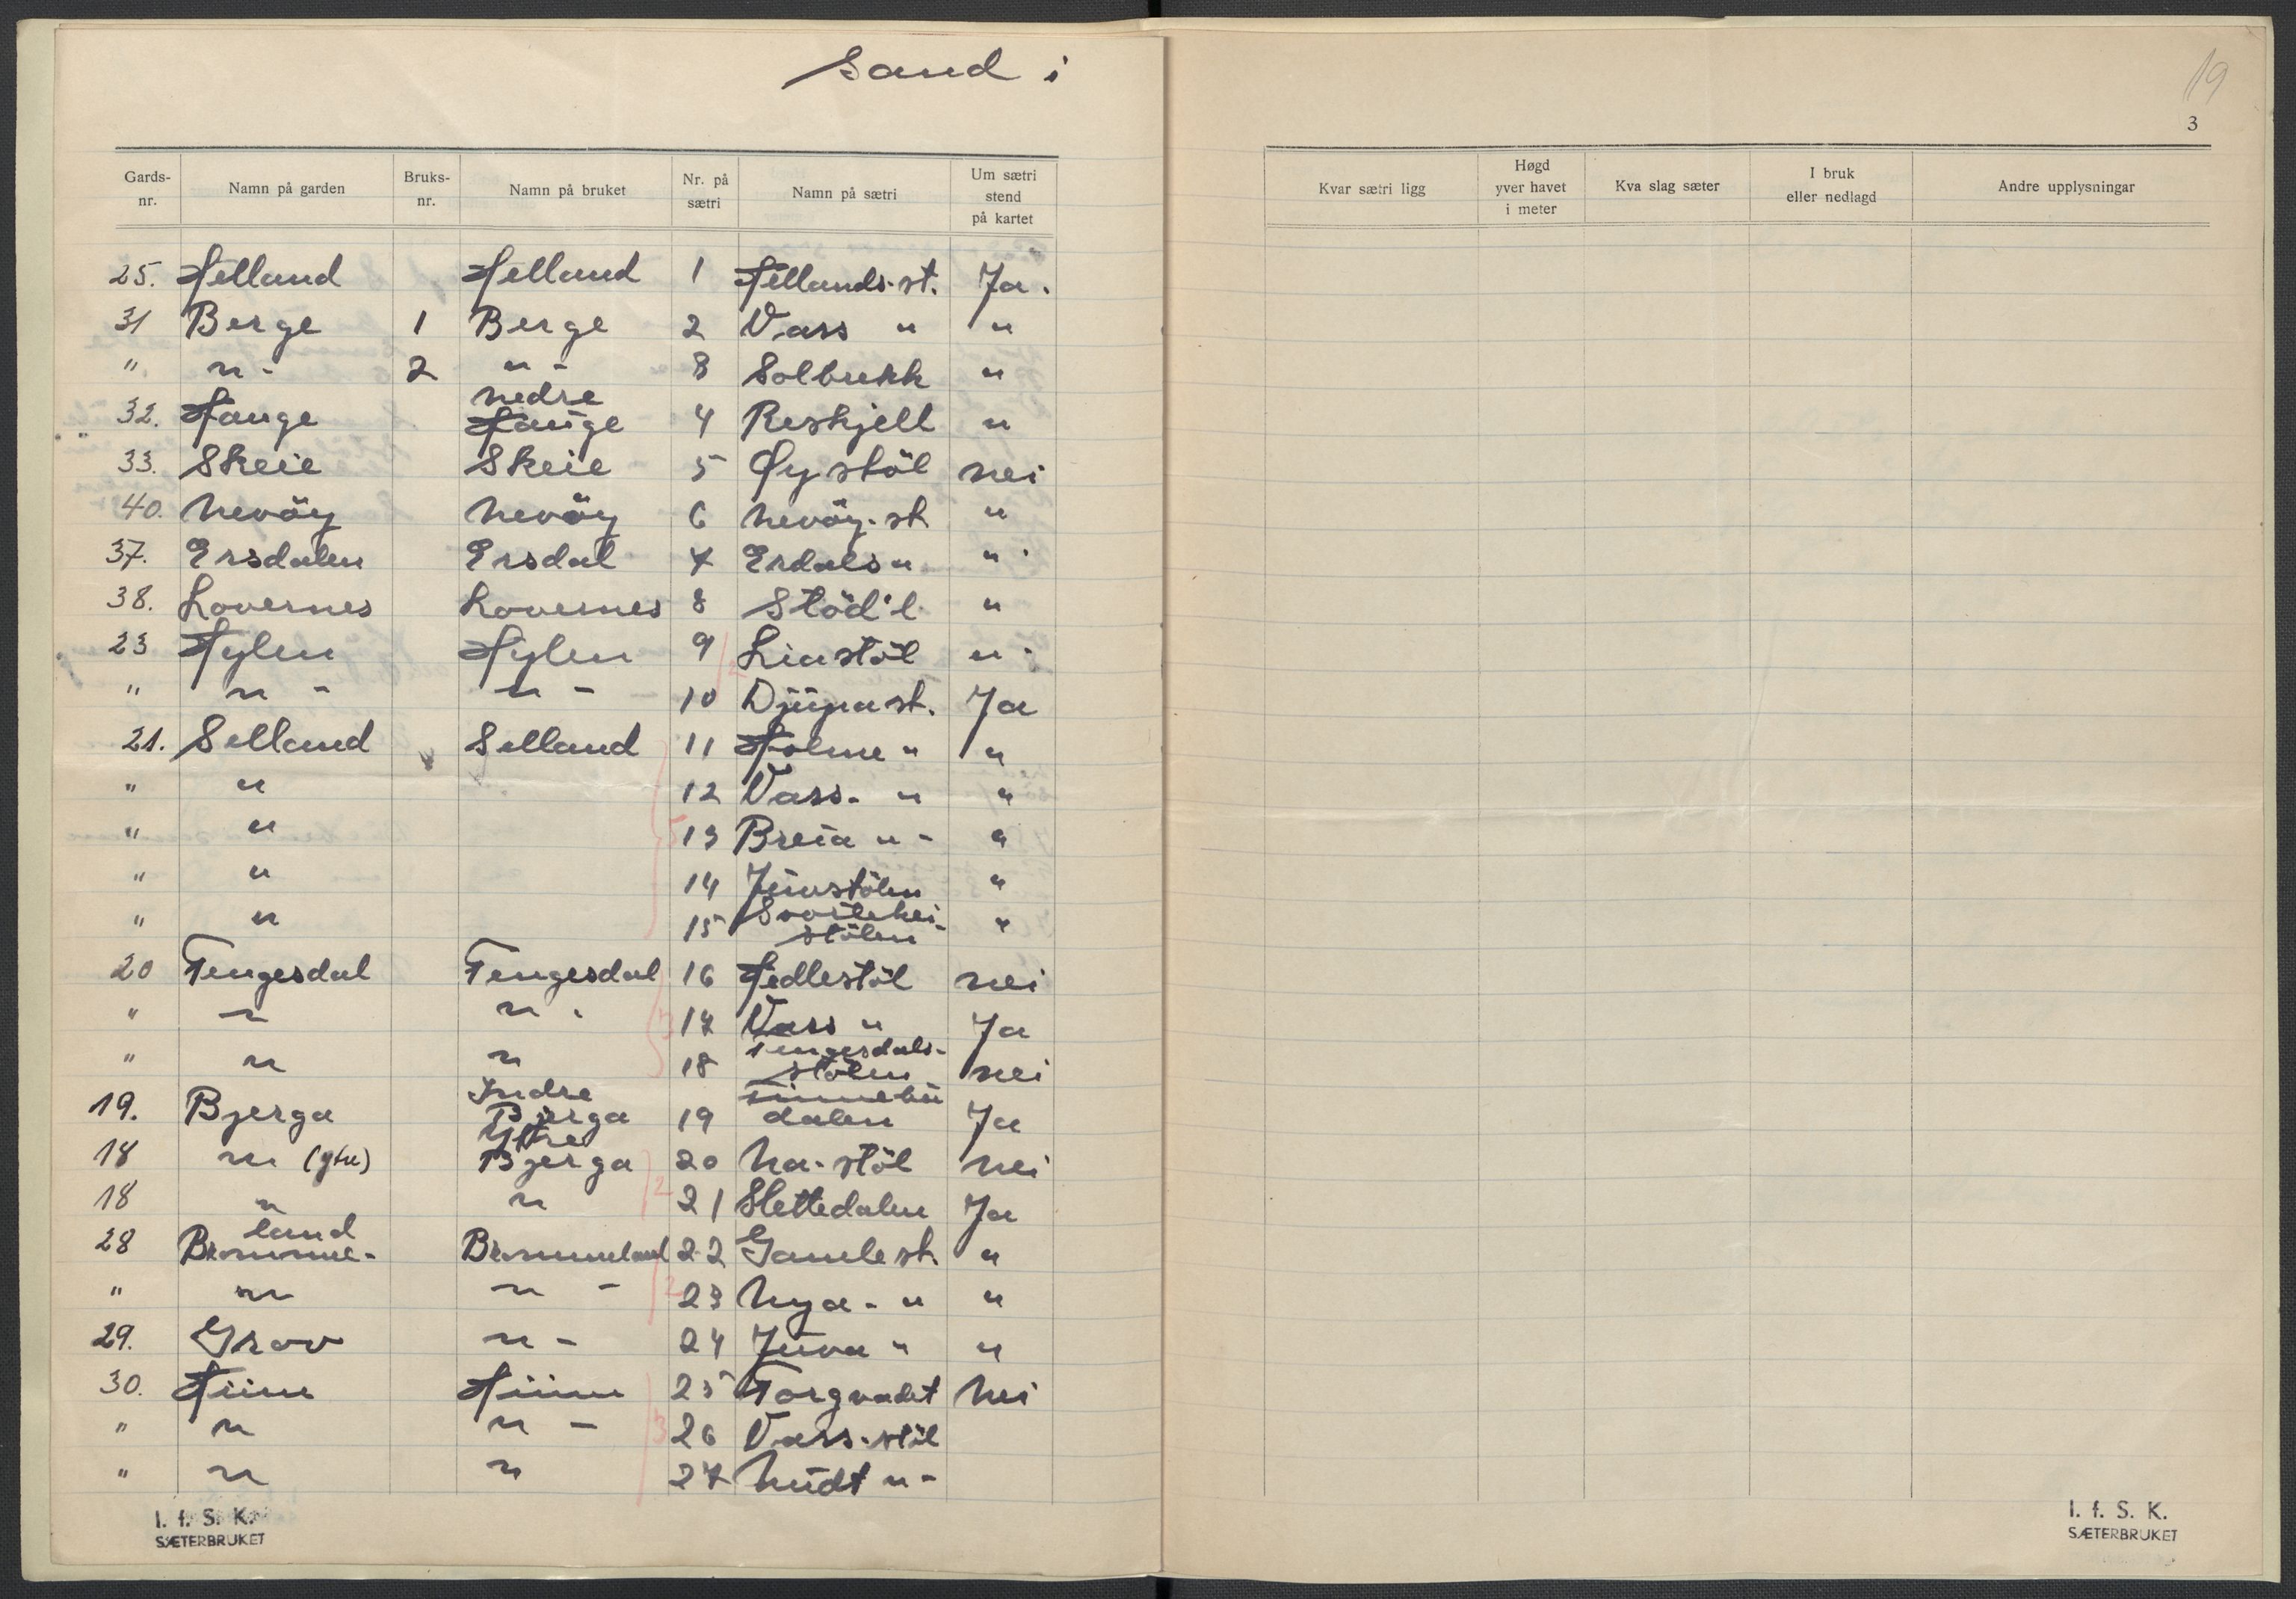 Sand i
19
3
Gards-nr. Namn på garden Bruks-nr. Namn på bruket Nr. på sætri Namn på sætri Um sætri stend på kartet
Kvar sætri ligg Høgd yver havet i meter Kva slag sæter I bruk eller nedlagd Andre upplysningar
25. Helland Helland 1 Hellands.st. Ja.
31 Berge 1 Berge 2 Vass " "
" " - 2 " - 3 Solbrekk "
32. Hauge nedre Hauge 4 Reskjell "
33. Skeie Skeie 5 Øystöl nei
40. Nevöy Nevöy 6 Nevöy.st "
37. Ersdalen Ersdal 7 Erdals " "
38. Lovernes Lovernes 8 Stöd'l "
23 Hylen Hylen 9 Liastöl " -
" " - " - 10 Djüpa st. Ja
21. Selland Selland 11 Holme " "
" " 12 Vass. " "
" " 13 Breia " - "
" " 14 Jüvstölen "
" " 15 Svortehei-stölen "
20 Tengesdal Tengesdal 16 Hedlestöl nei
" " " . 17 Vass " Ja
" " " 18 Tengesdals-stölen nei
19. Bjerga Indre Bjerga 19 dalen Ja
18 " (ytre) Ytre Bjerga 20 Na-stöl nei
18 " " 21 Slettedalen Ja
28 Bromme-land Brommeland 22 Gamle st. "
" " " - 23 Nya - " "
29. Grov " - 24 Jüva " "
30. Hiim Hiim 25 Torgvadet Nei
" " " - 26 Vass.stöl
" " " 27 Nüdt " -
2
5
3
2
2
3
I. f. S. K.
SÆTERBRUKET
I. f. S. K.
SÆTERBRUKET